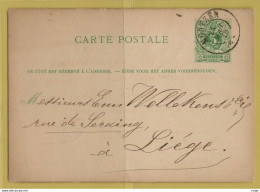 CARTE POSTALE
CE CÔTÉ EST RÉSERVÉ À L'ADRESSE. — ZIJDE VOOR HET ADRES VOORBEHOUDEN.
Messieurs Em Wellekens &
rue de Seraing,
à Liége.